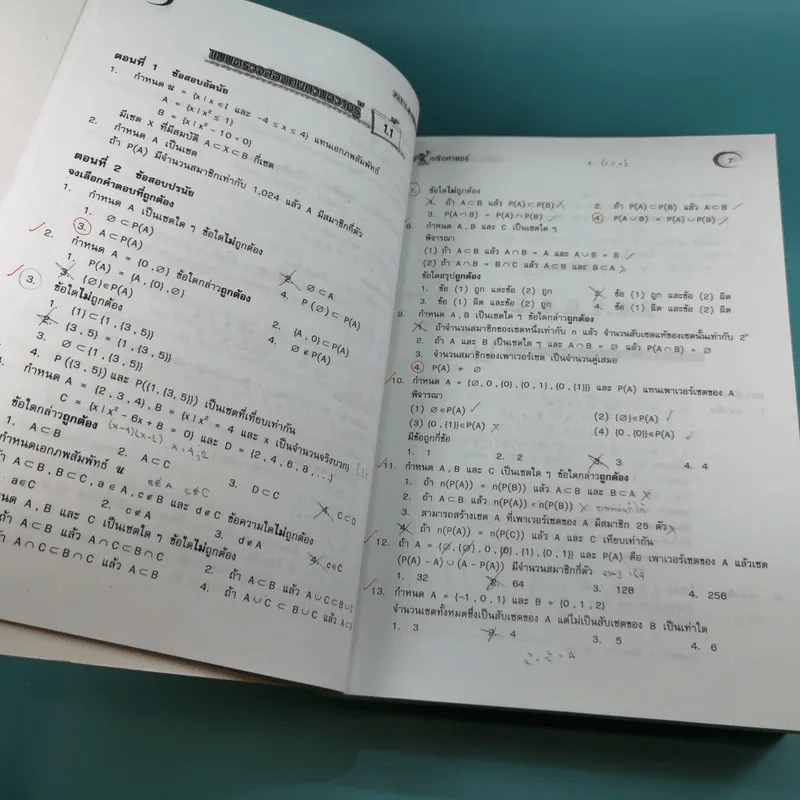 แบบตรวจสอบทบทวนความรู้
1.1
ตอนที่ 1 ข้อสอบอัตนัย
1. กำหนด U = {x | x ∈ I และ -4 ≤ x ≤ 4} แทนเอกภพสัมพัทธ์
A = {x | x² ≤ 1}
B = {x | x² - 10 < 0}
มีเซต X ที่มีสมบัติ A ⊂ X ⊂ B กี่เซต
2. กำหนด A เป็นเซต
ถ้า P(A) มีจำนวนสมาชิกเท่ากับ 1,024 แล้ว A มีสมาชิกกี่ตัว
ตอนที่ 2 ข้อสอบปรนัย
จงเลือกคำตอบที่ถูกต้อง
1. กำหนด A เป็นเซตใด ๆ ข้อใดไม่ถูกต้อง
1. ∅ ⊂ P(A)
2. ∅ ⊂ A
3. A ⊂ P(A)
4. P(∅) ⊂ P(A)
2. กำหนด A = {0, ∅} ข้อใดกล่าวถูกต้อง
1. P(A) = {A, {0}, ∅}
2. {A, 0} ⊂ P(A)
3. {∅} ∈ P(A)
4. ∅ ∉ P(A)
3. ข้อใดไม่ถูกต้อง
1. {1} ⊂ {1, {3, 5}}
2. {3, 5} = {1, {3, 5}}
3. ∅ ⊂ {1, {3, 5}}
4. P({3, 5}) และ P({1, {3, 5}}) เป็นเซตที่เทียบเท่ากัน
กำหนด A = {2, 3, 4}, B = {x | x² = 4 และ x เป็นจำนวนจริงบวก}
C = {x | x² - 6x + 8 = 0} และ D = {2, 4, 6, 8, ...}
ข้อใดกล่าวถูกต้อง
x = 4, 2
1. A ⊂ B
2. A ⊂ C
3. D ⊂ C
4. C ⊂ D
กำหนดเอกภพสัมพัทธ์ U
A ⊂ B, B ⊂ C, a ∈ A, c ∉ B และ d ∉ C ข้อความใดไม่ถูกต้อง
a ∈ C
2. c ∉ A
3. d ∉ A
4. c ∉ C
A, B และ C เป็นเซตใด ๆ ข้อใดไม่ถูกต้อง
ถ้า A ⊂ B แล้ว A ∩ C ⊂ B ∩ C
2. ถ้า A ⊂ B แล้ว A ∪ C ⊂ B ∪ C
ถ้า A ∩ C ⊂ B ∩ C แล้ว A ⊂ B
4. ถ้า A ∪ C ⊂ B ∪ C แล้ว A ⊂ B
7
7. ข้อใดไม่ถูกต้อง
1. ถ้า A ⊂ B แล้ว P(A) ⊂ P(B)
2. ถ้า P(A) ⊂ P(B) แล้ว A ⊂ B
3. P(A ∩ B) = P(A) ∩ P(B)
4. P(A ∪ B) = P(A) ∪ P(B)
8. กำหนด A, B และ C เป็นเซตใด ๆ
พิจารณา
(1) ถ้า A ⊂ B แล้ว A ∩ B = A และ A ∪ B = B
(2) ถ้า A ∩ B = B ∩ C แล้ว A ⊂ B และ B ⊂ A
ข้อใดสรุปถูกต้อง
1. ข้อ (1) ถูก และข้อ (2) ถูก
2. ข้อ (1) ถูก และข้อ (2) ผิด
3. ข้อ (1) ผิด และข้อ (2) ถูก
4. ข้อ (1) ผิด และข้อ (2) ผิด
9. กำหนด A, B เป็นเซตใด ๆ ข้อใดกล่าวถูกต้อง
1. ถ้าจำนวนสมาชิกของเซตหนึ่งเท่ากับ n แล้ว จำนวนสับเซตแท้ของเซตนั้นเท่ากับ 2ⁿ
2. ถ้า A และ B เป็นเซตใด ๆ และ A ∩ B = ∅ แล้ว P(A ∩ B) = ∅
3. จำนวนสมาชิกของเพาเวอร์เซต เป็นจำนวนคู่เสมอ
4. P(A) ≠ ∅
10. กำหนด A = {∅, 0, {0}, {0, 1}, {0, {1}}} และ P(A) แทนเพาเวอร์เซตของ A
พิจารณา
(1) ∅ ∈ P(A)
(2) {∅} ∈ P(A)
(3) {0, {1}} ∈ P(A)
(4) {0, {0}} ∈ P(A)
มีข้อถูกกี่ข้อ
1. 1
2. 2
3. 3
4. 4
11. กำหนด A, B และ C เป็นเซตใด ๆ ข้อใดกล่าวถูกต้อง
1. ถ้า n(P(A)) = n(P(B)) แล้ว A ⊂ B และ B ⊂ A
2. ถ้า A ⊂ B แล้ว n(P(A)) < n(P(B))
3. สามารถสร้างเซต A ที่เพาเวอร์เซตของ A มีสมาชิก 25 ตัว
4. ถ้า n(P(A)) = n(P(C)) แล้ว A และ C เทียบเท่ากัน
12. ถ้า A = {∅, {∅}, 0, {0}, {1}, {0, 1}} และ P(A) คือ เพาเวอร์เซตของ A แล้วเซต
(P(A) - A) ∪ (A - P(A)) มีจำนวนสมาชิกกี่ตัว
1. 32
2. 64
3. 128
4. 256
13. กำหนด A = {-1, 0, 1} และ B = {0, 1, 2}
จำนวนเซตทั้งหมดซึ่งเป็นสับเซตของ A แต่ไม่เป็นสับเซตของ B เป็นเท่าใด
1. 3
2. 4
3. 5
4. 6
2³ - 2² = 4